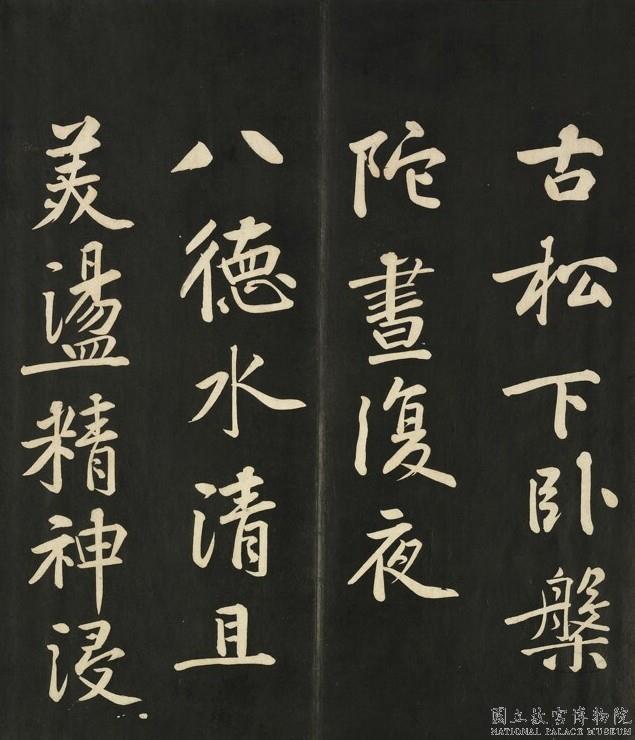 古松下卧槃
陀晝復夜
八德水清且
美盪精神浸
國立故宮博物院
NATIONAL PALACE MUSEUM